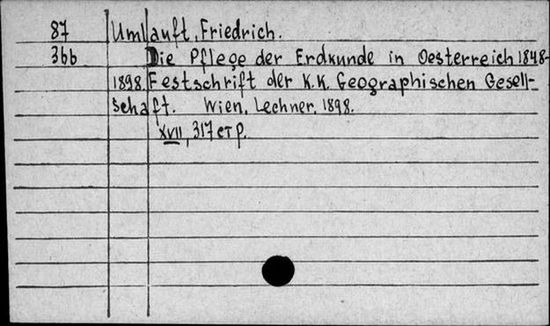 87 Umlauft, Friedrich.
366 Die Pflege der Erdkunde in Oesterreich 1848-
1898. Festschrift der K.K. Geographischen Gesell-
schaft. Wien, Lechner, 1898.
XVII, 317 стр.